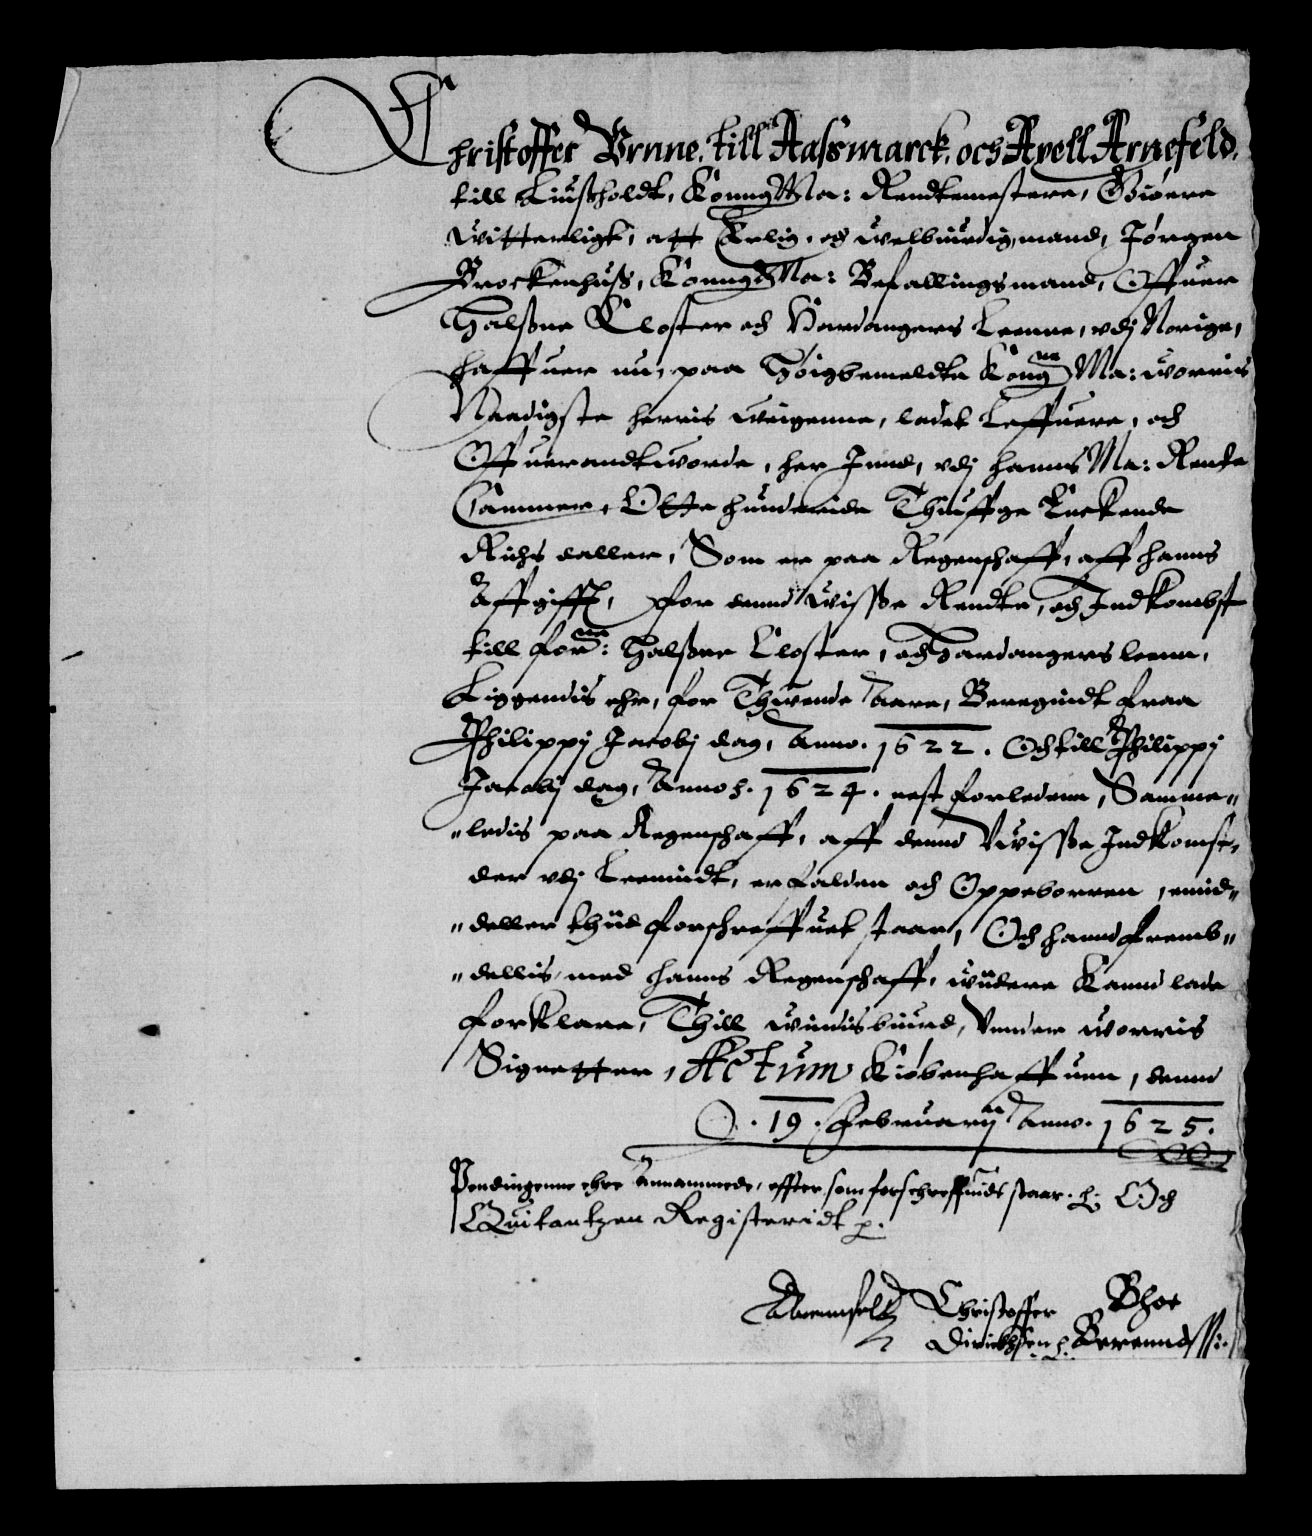 Christoffer Vrnne, till Aassmarck, och Axell Arnefeld,
till Liustholdt, Konng: Ma: Rendtemestere, Giøere
witterligt, att Erlig, och welbiurdig, mand, Jørgen
Brockenhuss, Konng: Ma: Befallingsmand, Offuer
Halssne Closter och Hardangers Leenne, vdj Norige,
haffuer nu, paa Høigbemeldte Konng: Ma: worris
Naadigste herris weigenne, ladet Leffuere, och
Offuerandtworde, her Innd, vdj hanns Ma: Rente
Cammer, Otte hunderide Thiuffge Enckende
Richs daller, Som er paa Regenschaff, aff hanns
Affgifft, for dend wisse Rendte, och Indkombst
till forne: Halssne Closter, och Hardangers leenn,
Liggendis ehr, for Thuende Aare, Beregindt fraa
Philippj Jacobj dag, Anno. 1622. Och till Philippj
Jacobj dag, Anno. 1624. nest forledenn, Samme"
"ledis paa Regenschaff, aff dend Vwisse Indkomst,
der vdj Leenidt, er falden och Oppeborren, imid"
"deller thiid forschreffuet staar, Och hannd fremb"
"dellis, med hanns Regenschaff, widere kannd lade
forklare, Thill windisbiurd, Vnnder worris
Signetter, Actum Kiøbenhaffuen, dennd
19. Februarij Anno. 1625.
Pendingenne ehre Annammede, effter som forschreffuidt staar. Och
Quitantzen Registeridt p.
Arennfeldt Christoffer Bhoe
Dirichssen Berenndssen